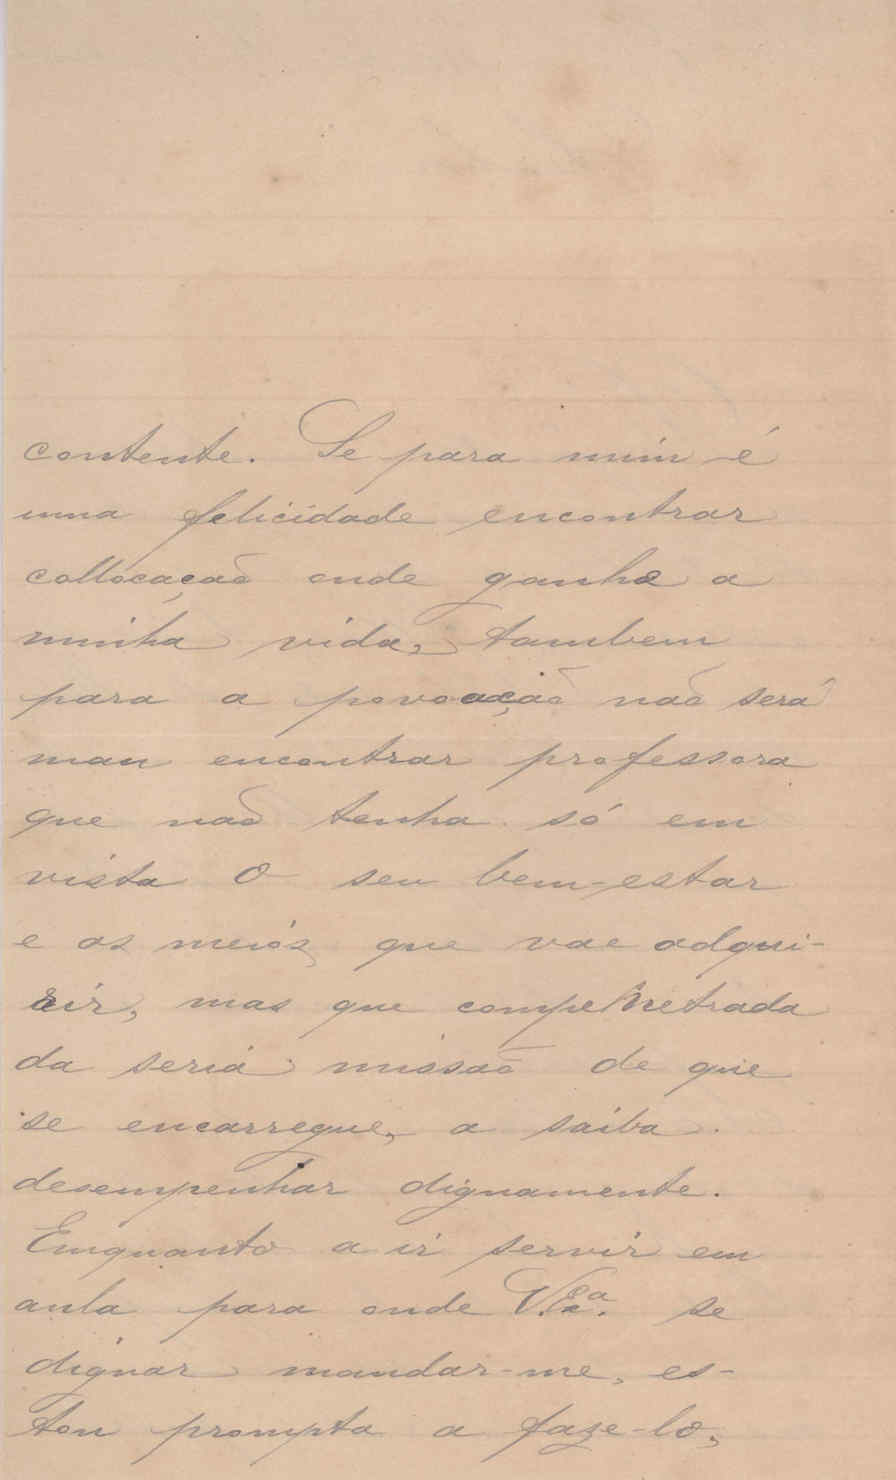 contente. Se para mim é
uma felicidade encontrar
collocação onde ganhe a
minha vida, tambem
para a povoação não será
mau encontrar professora
que não tenha só em
vista o seu bem-estar
e os meios que vae adqui-
rir, mas que compenetrada
da seria missão de que
se encarregue, a saiba
desempenhar dignamente.
Emquanto a ir servir em
aula para onde V. Exª. se
dignar mandar-me, es-
tou prompta a faze-lo,